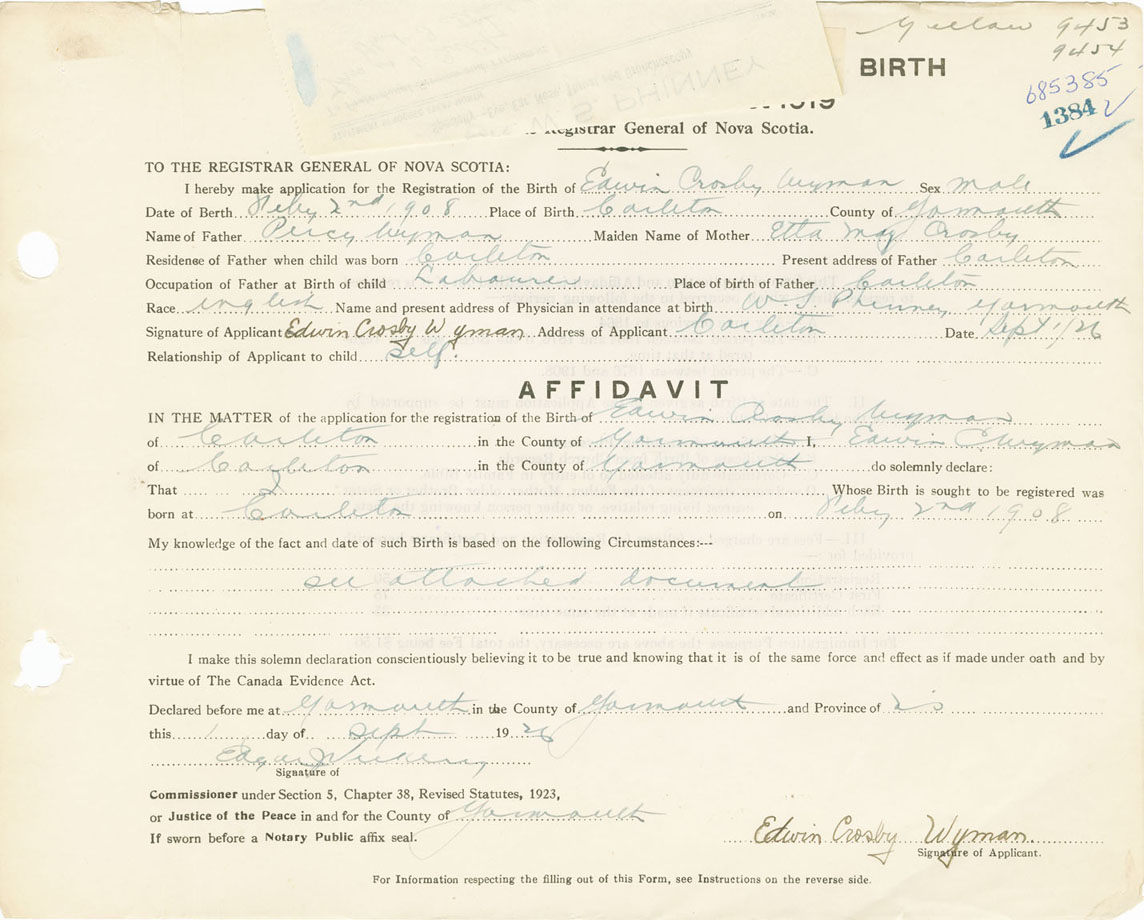 9453
9454
BIRTH
685385
1384
1919
Registrar General of Nova Scotia.
W S PHINNEY
TO THE REGISTRAR GENERAL OF NOVA SCOTIA:
I hereby make application for the Registration of the Birth of Edwin Crosby Wyman Sex male
Date of Berth Feby 2nd 1908 Place of Birth Carleton County of Yarmouth
Name of Father Percy Wyman Maiden Name of Mother Etta May Crosby
Residense of Father when child was born Carleton Present address of Father Carleton
Occupation of Father at Birth of child Labourer Place of birth of Father Carleton
Race inglish Name and present address of Physician in attendance at birth W. S. Phinney Yarmouth
Signature of Applicant Edwin Crosby Wyman Address of Applicant Carleton Date Sept 1/26
Relationship of Applicant to child self.
AFFIDAVIT
IN THE MATTER of the application for the registration of the Birth of Edwin Crosby Wyman
of Carleton in the County of Yarmouth I, Edwin C Wyman
of Carleton in the County of Yarmouth do solemnly declare:
That I Whose Birth is sought to be registered was
born at Carleton on Feby 2nd 1908
My knowledge of the fact and date of such Birth is based on the following Circumstances:---
see attached document
I make this solemn declaration conscientiously believing it to be true and knowing that it is of the same force and effect as if made under oath and by
virtue of The Canada Evidence Act.
Declared before me at Yarmouth in the County of Yarmouth and Province of
this 1 day of Sept 1926
Edgar
Signature of
Commissioner under Section 5, Chapter 38, Revised Statutes, 1923,
or Justice of the Peace in and for the County of Yarmouth
If sworn before a Notary Public affix seal.
Edwin Crosby Wyman.
Signature of Applicant.
For Information respecting the filling out of this Form, see Instructions on the reverse side.